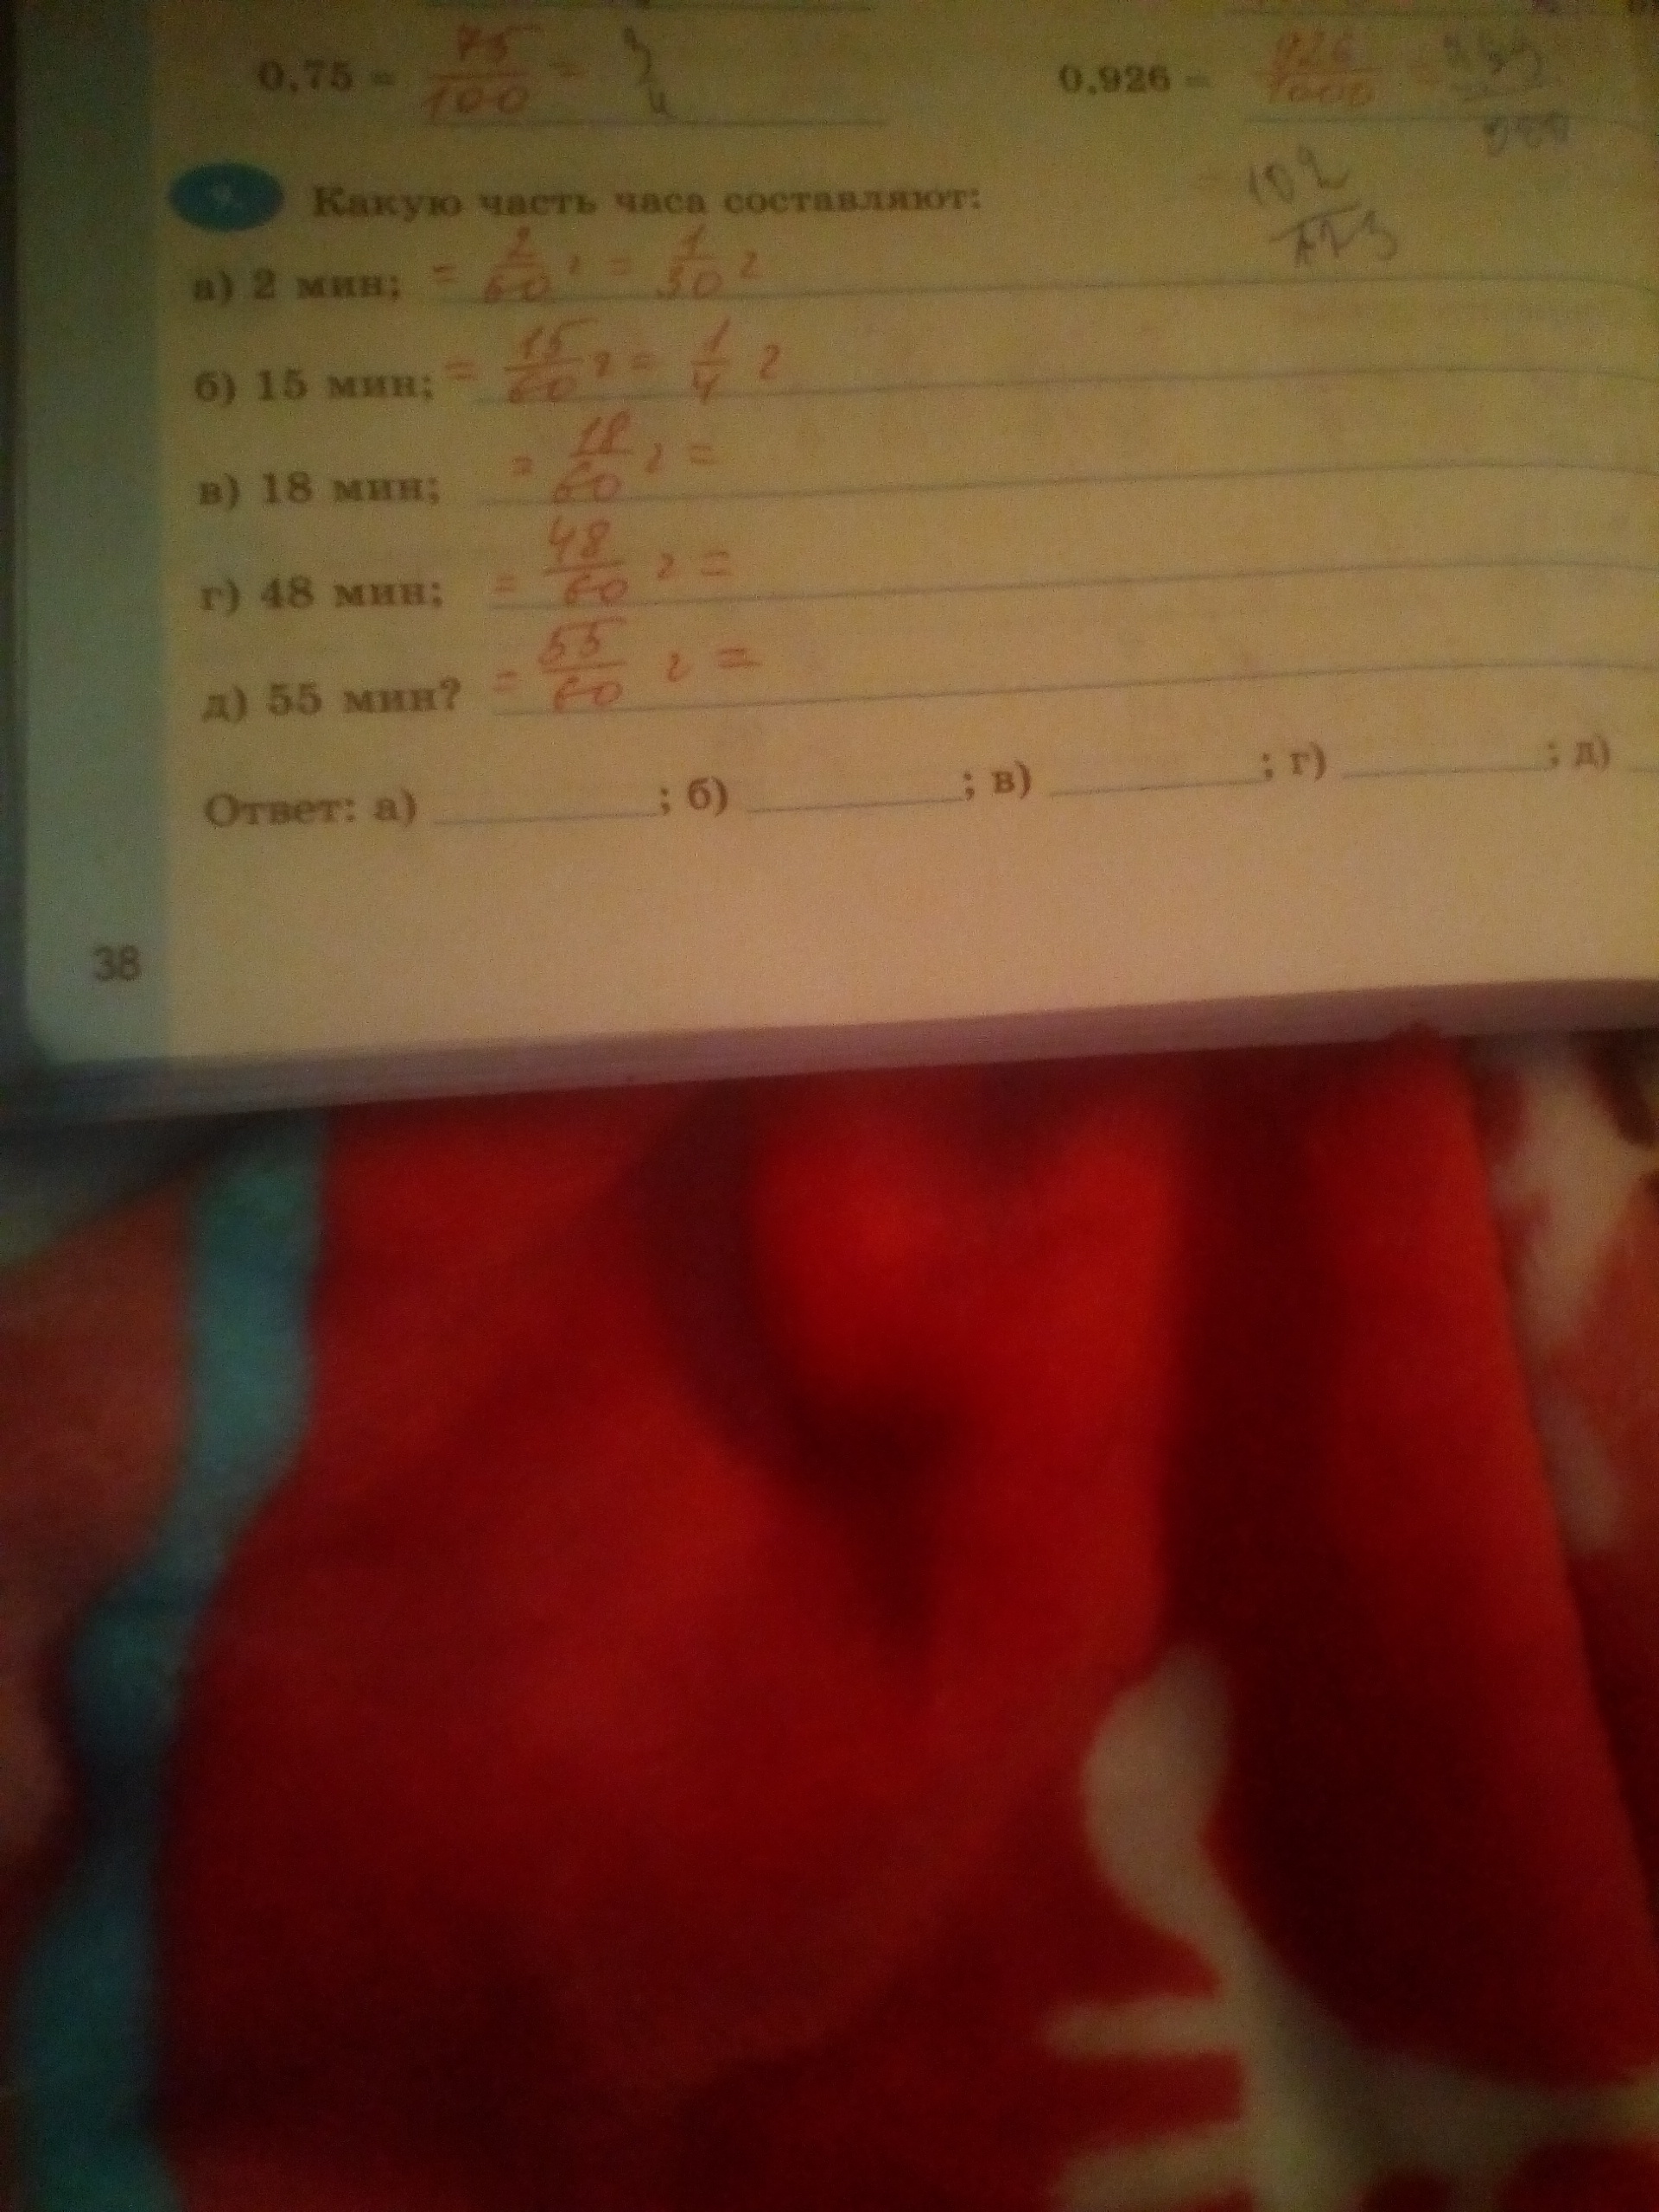 0,75 = 75/100 = 3/4 0,926 = 926/1000 =
Какую часть часа составляют:
а) 2 мин; = 2/60 ч = 1/30 ч
б) 15 мин; = 15/60 ч = 1/4 ч
в) 18 мин; = 18/60 ч =
г) 48 мин; = 48/60 ч =
д) 55 мин? = 55/60 ч =
Ответ: а) ; б) ; в) ; г) ; д)
38